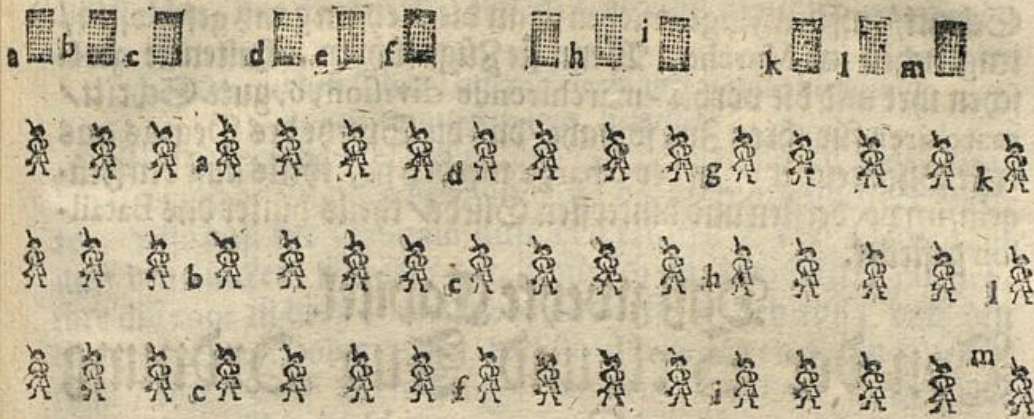 a b c d e f h i k l m
a d g k
b e h l
c f i m